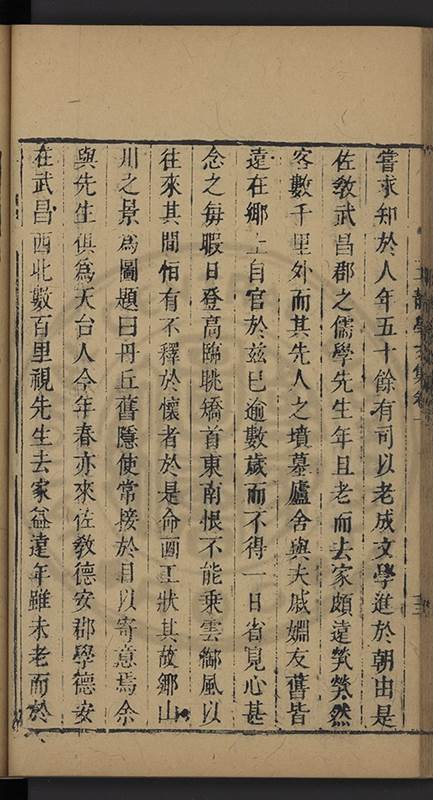 嘗求知於人年五十餘有司以老成文學進於朝由是
佐教武昌郡之儒學先生年且老而去家頗遠煢煢然
客數千里外而其先人之墳墓廬舍與夫戚婣友舊皆
遠在鄉土自官於兹已逾數歲而不得一日省覓心甚
念之每暇日登高臨眺矯首東南恨不能乗雲御風以
往來其間怕有不釋於懷者於是命画工狀其故鄉山
川之景為圖題曰丹丘舊隱使常接於目以寄意焉余
與先生俱爲天台人今年春亦來佐教德安郡學德安
在武昌西北數百里視先生去家益遠年雖未老而於